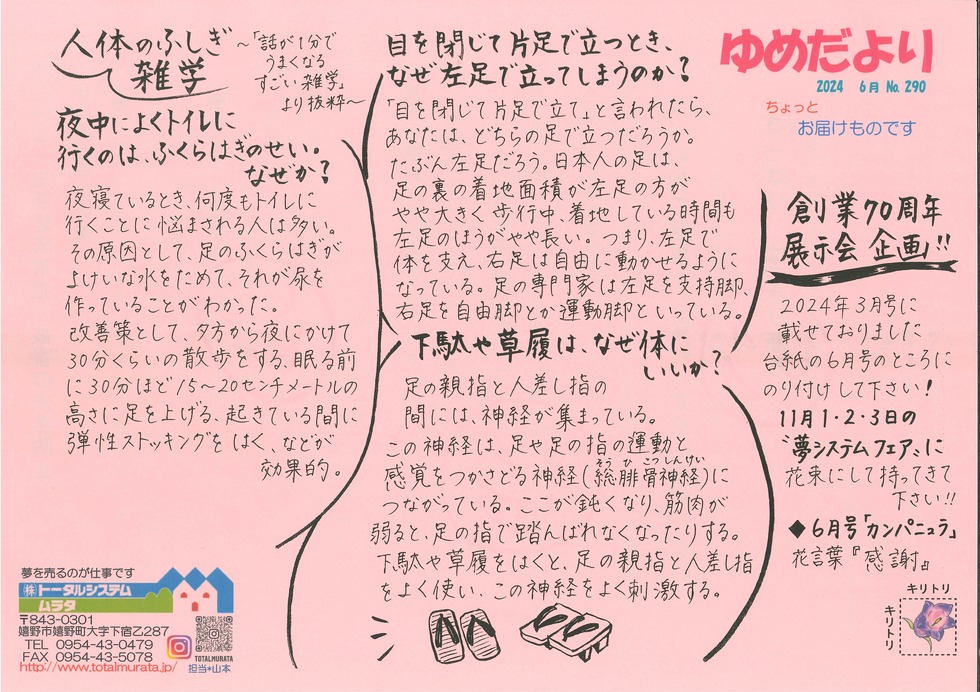 人体のふしぎ
雑学
~「話が1分で
うまくなる
すごい雑学」
より抜粋~
夜中によくトイレに
行くのは、ふくらはぎのせい。
なぜか?
夜寝ているとき、何度もトイレに
行くことに悩まされる人は多い。
その原因として、足のふくらはぎが
よけいな水をためて、それが尿を
作っていることがわかった。
改善策として、夕方から夜にかけて
30分くらいの散歩をする、眠る前
に30分ほど15~20センチメートルの
高さに足を上げる、起きている間に
弾性ストッキングをはく、などが
効果的。
目を閉じて片足で立つとき、
なぜ左足で立ってしまうのか?
「目を閉じて片足で立て」と言われたら、
あなたは、どちらの足で立つだろうか。
たぶん左足だろう。日本人の足は、
足の裏の着地面積が左足の方が
やや大きく歩行中、着地している時間も
左足のほうがやや長い。つまり、左足で
体を支え、右足は自由に動かせるように
なっている。足の専門家は左足を支持脚、
右足を自由脚とか運動脚といっている。
下駄や草履は、なぜ体に
いいか?
足の親指と人差し指の
間には、神経が集まっている。
この神経は、足や足の指の運動と
感覚をつかさどる神経(総腓骨神経)に
そうひこつしんけい
つながっている。ここが鈍くなり、筋肉が
弱ると、足の指で踏んばれなくなったりする。
下駄や草履をはくと、足の親指と人差し指
をよく使い、この神経をよく刺激する。
ゆめだより
2024 6月 No.290
ちょっと
お届けものです
創業70周年
展示会 企画!!
2024年3月号に
載せておりました
台紙の6月号のところに
のり付けして下さい!
11月1・2・3日の
〝夢システムフェア〟に
花束にして持ってきて
下さい!!
◆6月号「カンパニュラ」
花言葉『感謝』
キリトリ
キリトリ
夢を売るのが仕事です
㈱トータルシステム
ムラタ
〒843-0301
嬉野市嬉野町大字下宿乙287
TEL 0954-43-0479
FAX 0954-43-5078
http://www.totalmurata.jp/
TOTALMURATA
担当*山本